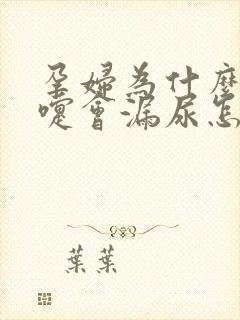 孕婦為什麼
嚏會漏尿怎
葉葉